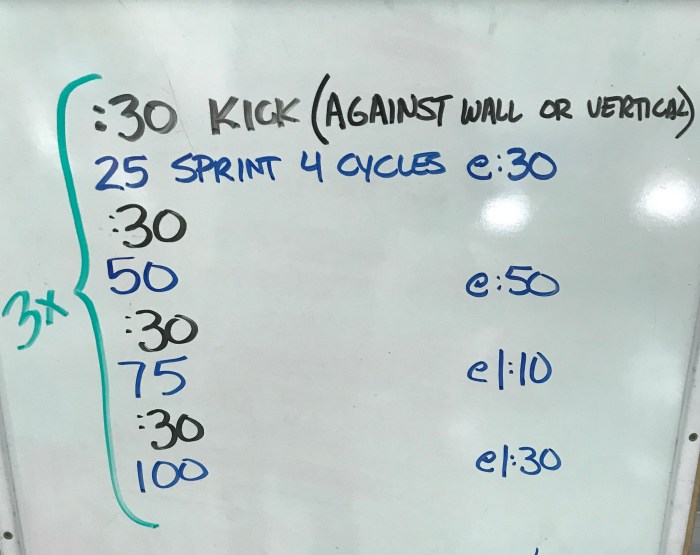 :30 KICK (AGAINST WALL OR VERTICAL)
25 SPRINT 4 CYCLES e:30
:30
50 e:50
3x
:30
75 e1:10
:30
100 e1:30